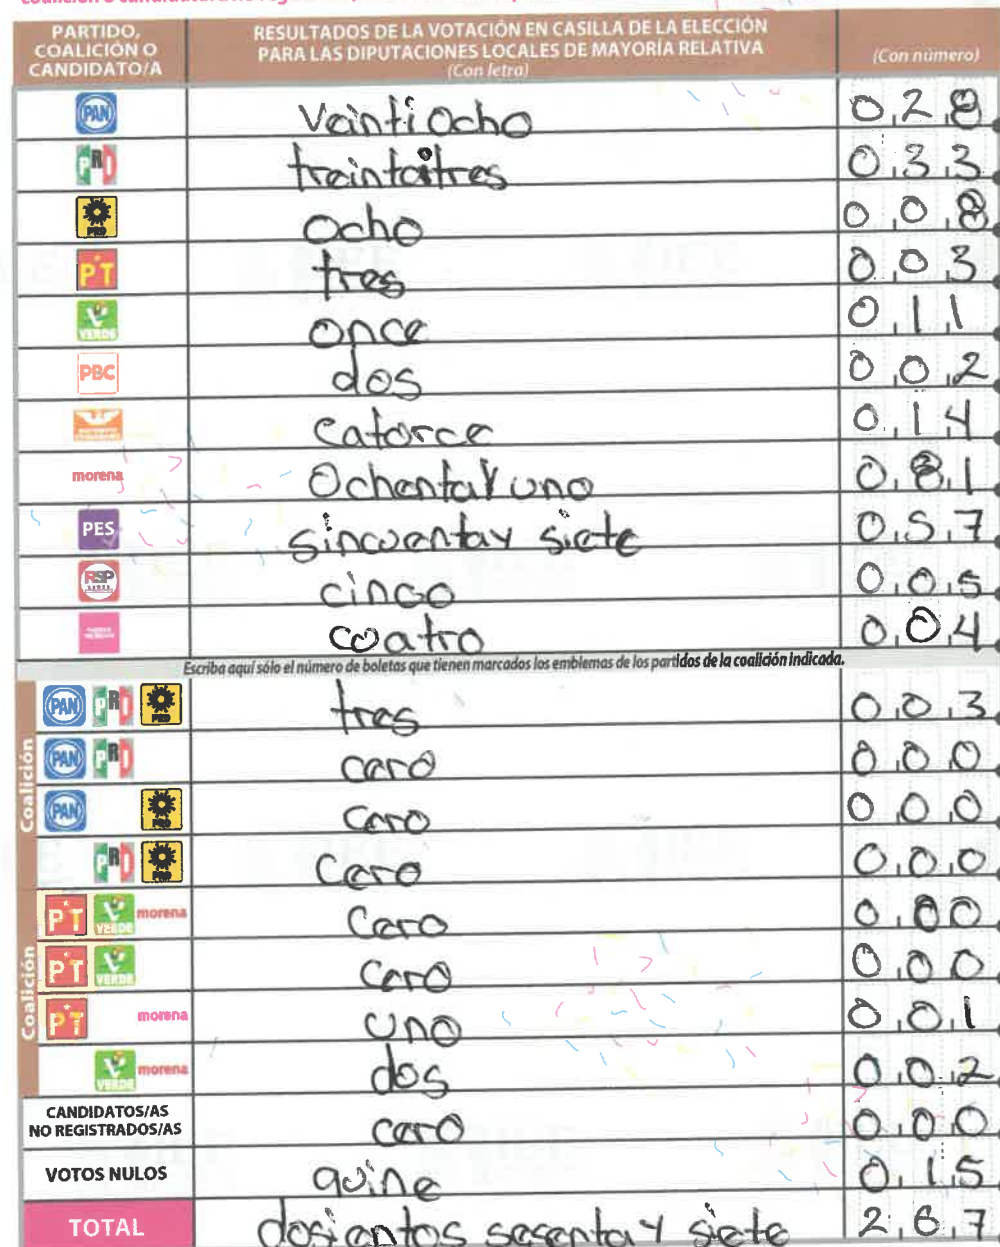 PARTIDO, COALICIÓN O CANDIDATO/A
RESULTADOS DE LA VOTACIÓN EN CASILLA DE LA ELECCIÓN PARA LAS DIPUTACIONES LOCALES DE MAYORÍA RELATIVA (Con letra)
(Con número)
PAN Veintiocho 028
PRI treintaitres 033
PRD Ocho 008
PT tres 003
VERDE once 011
PBC dos 002
Catorce 014
morena Ochenta Y uno 081
PES sincuentay siete 057
RSP cinco 005
cuatro 004
Escriba aquí sólo el número de boletas que tienen marcados los emblemas de los partidos de la coalición indicada.
Coalición
PAN PRI PRD tres 003
PAN PRI cero 000
PAN PRD cero 000
PRI PRD Cero 000
Coalición
PT VERDE morena Cero 000
PT VERDE cero 000
PT morena uno 001
VERDE morena dos 002
CANDIDATOS/AS NO REGISTRADOS/AS cero 000
VOTOS NULOS quine 015
TOTAL dosientos sesenta Y siete 267